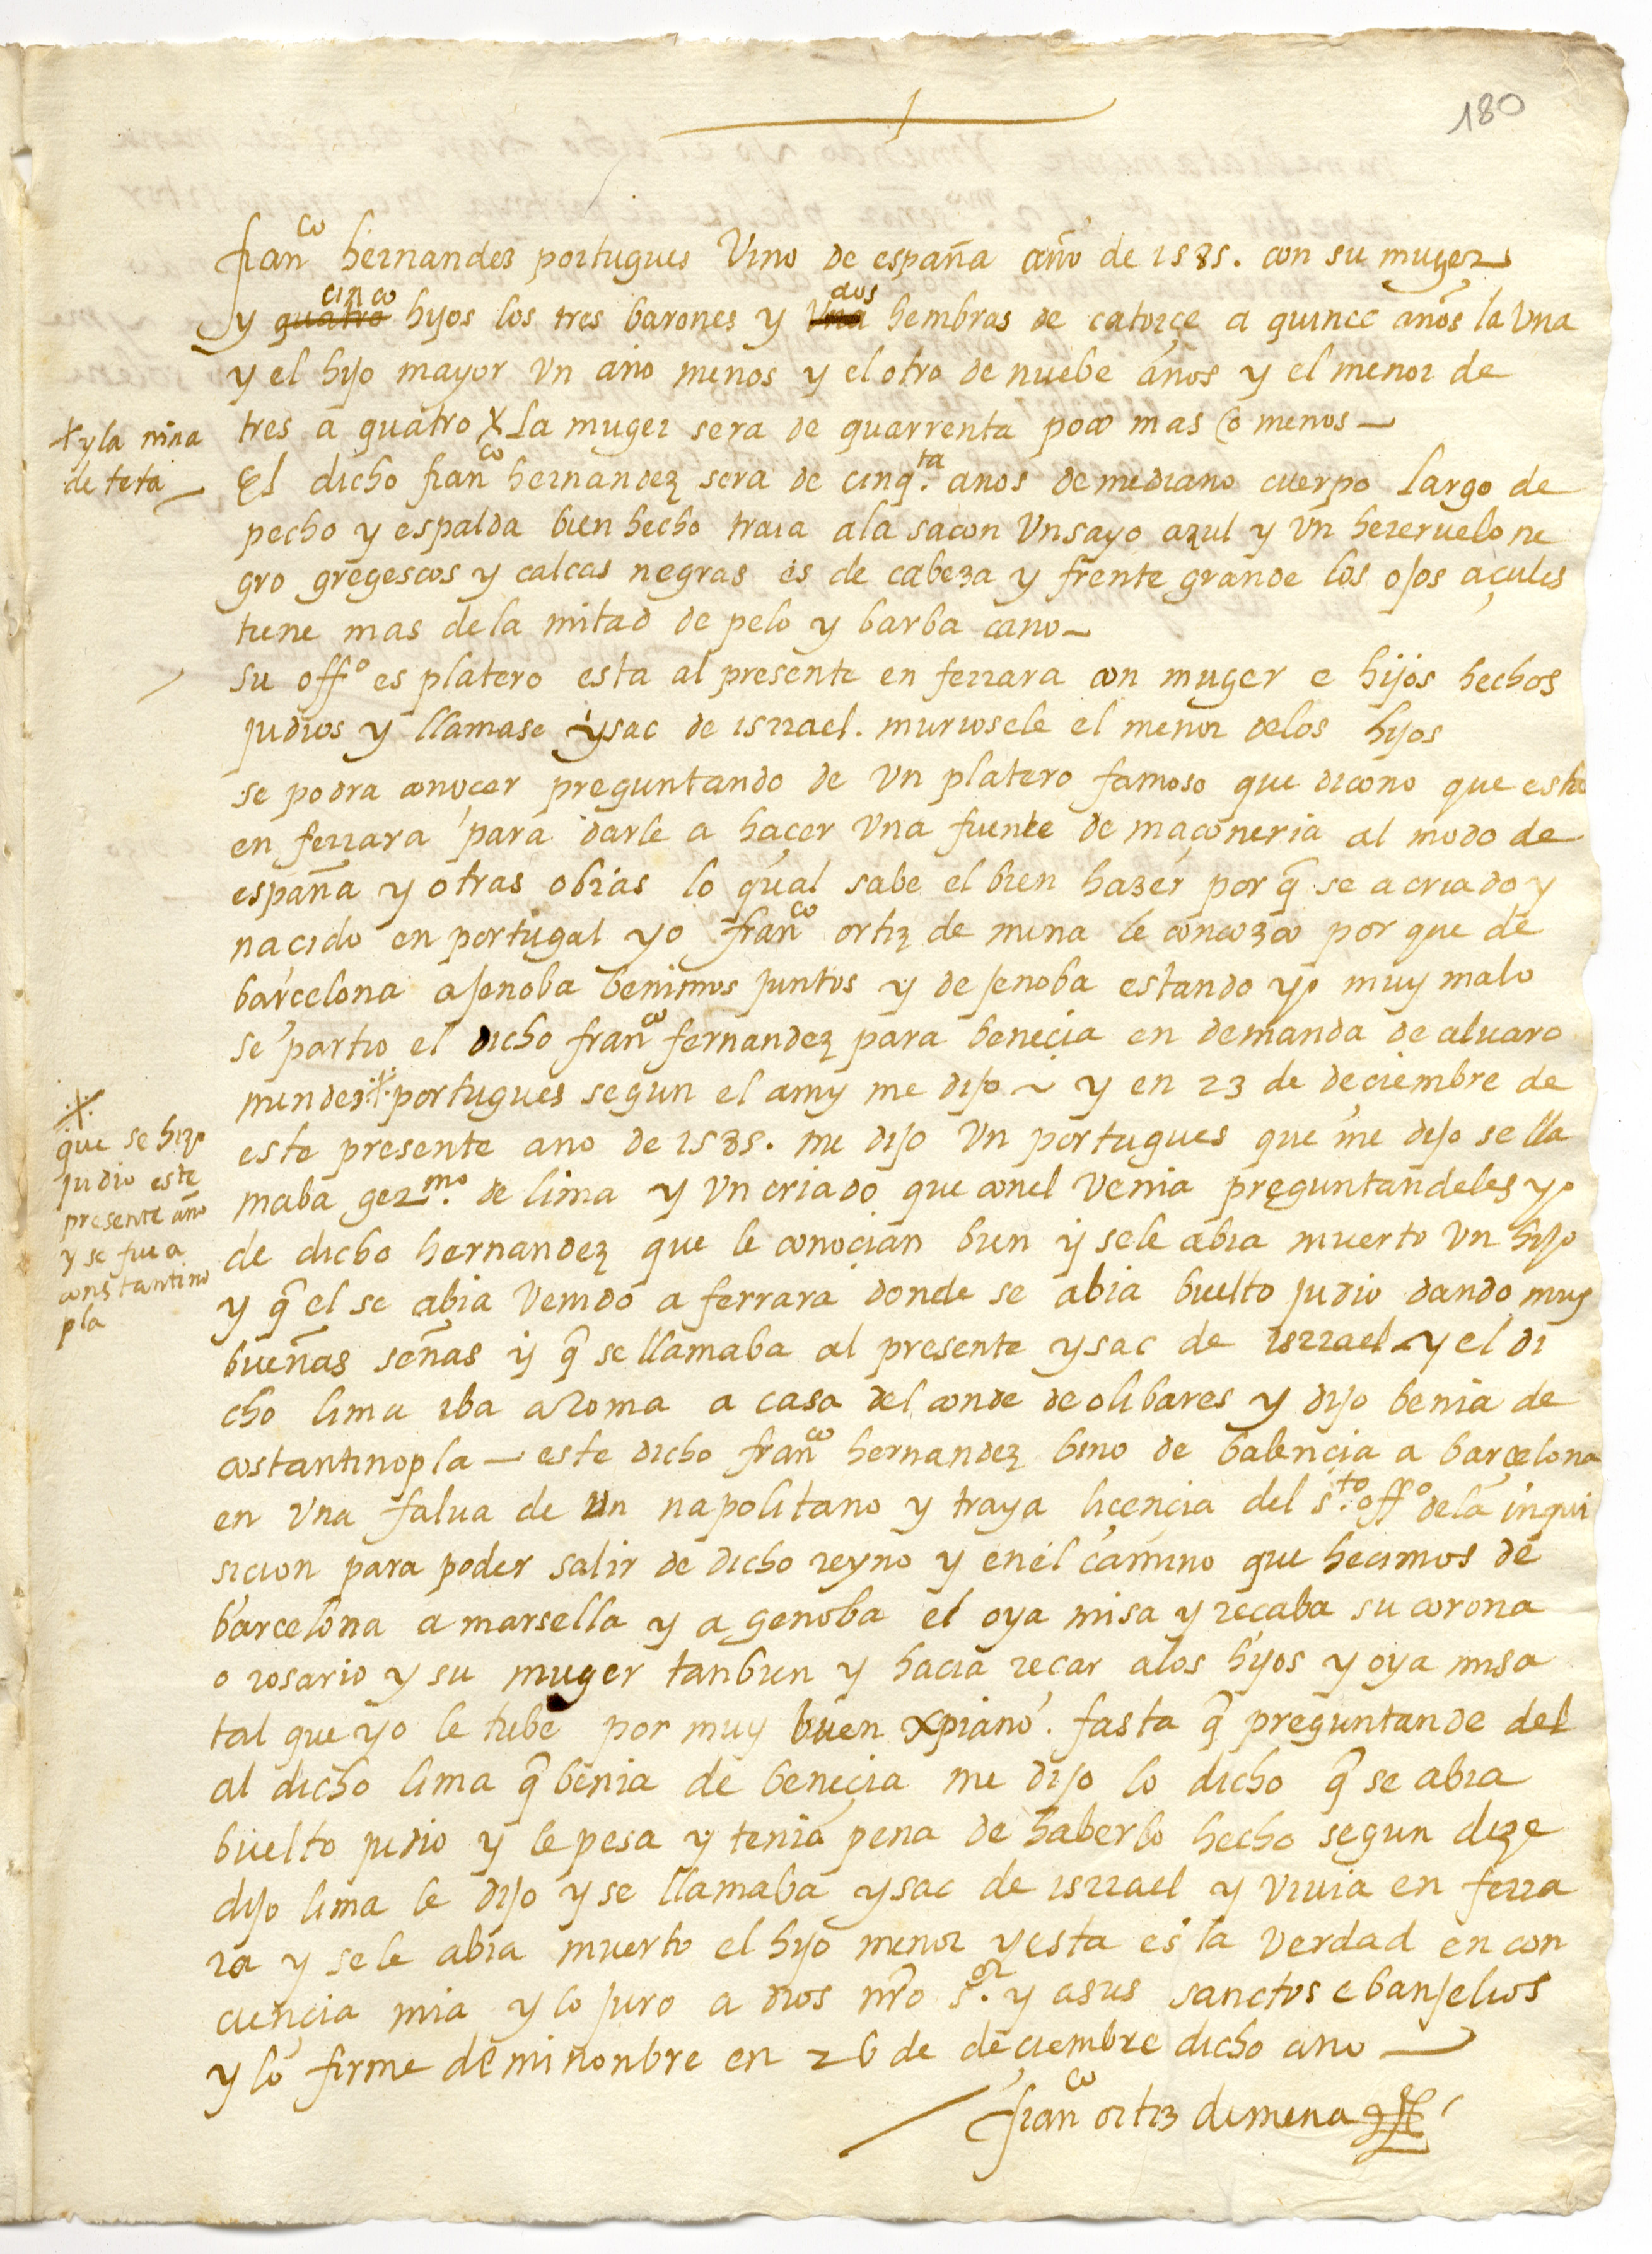 180
fran.co hernandez portugues Vino de españa año de 1585. con su muger
y quatro cinco hijos los tres barones y Vna dos hembras de catorçe a quince años la Vna
y el hijo mayor Vn año menos y el otro de nuebe años y el menor de
tres a quatro X La muger sera de quarrenta poco mas o menos
X y la nina
de teta
El dicho fran.co hernandez sera de cinq.ta anos de mediano cuerpo largo de
pecho y espalda bien hecho traia ala sacon Vn sayo azul y Vn hereruelo ne
gro gregescos y calcas negras es de cabeza y frente grande los ojos açules
tiene mas dela mitad de pelo y barba cano
su off.o es platero esta al presente en ferrara con muger e hijos hechos
judios y llamase ysac de isrrael. muriosele el menor delos hijos
se podra conocer preguntando de Vn platero famoso que dicono que esta
en ferrara para darle a haçer Vna fuente de maçoneria al modo de
españa y otras obras lo qual sabe el bien hazer por q̃ se a criado y
nacido en portugal yo fran.co ortiz de mena le conozco por que de
barcelona a jenoba benimos juntos y de jenoba estando yo muy malo
se partio el dicho fran.co fernandez para beneçia en demanda de aluaro
mendez X portugues segun el a my me dijo y en 23 de deciembre de
X
que se hizo
judio este
presente año
y se fue a
constantino
pla
este presente ano de 1585. me dijo Vn portugues que me dijo se lla
maba ger.mo de lima y Vn criado que conel Venia preguntandeles yo
de dicho hernandez que le conoçian bien y sele abia muerto Vn hijo
y q̃ el se abia Venido a ferrara donde se abia buelto judio dando muy
bueñas señas y q̃ se llamaba al presente ysac de isrrael y el di
cho lima iba a Roma a casa del conde de olibares y dijo benia de
costantinopla este dicho fran.co hernandez bino de balençia a barçelona
en Vna falua de un napolitano y traya licençia del s.to off.o dela inqui
sicion para poder salir de dicho reyno y enel camino que hecimos de
barcelona a marsella y a genoba el oya misa y reçaba su corona
o rosario y su muger tanbien y hacia reçar alos hijos y oya misa
tal que yo le tube por muy buen xpiano. fasta q̃ preguntande del
al dicho lima q̃ benia de beneçia me dijo lo dicho q̃ se abia
buelto judio y le pesa y tenia pena de haberlo hecho segun dize
dijo lima le dijo y se llamaba ysac de isrrael y Viuia en ferra
ra y sele abia muerto el hijo menor y esta es la Verdad en con
ciençia mia y lo juro a dios nr̃o s.or y asus sanctos ebanjelios
y lo firme de mi nonbre en 26 de deçiembre dicho ano
fran.co ortiz de mena